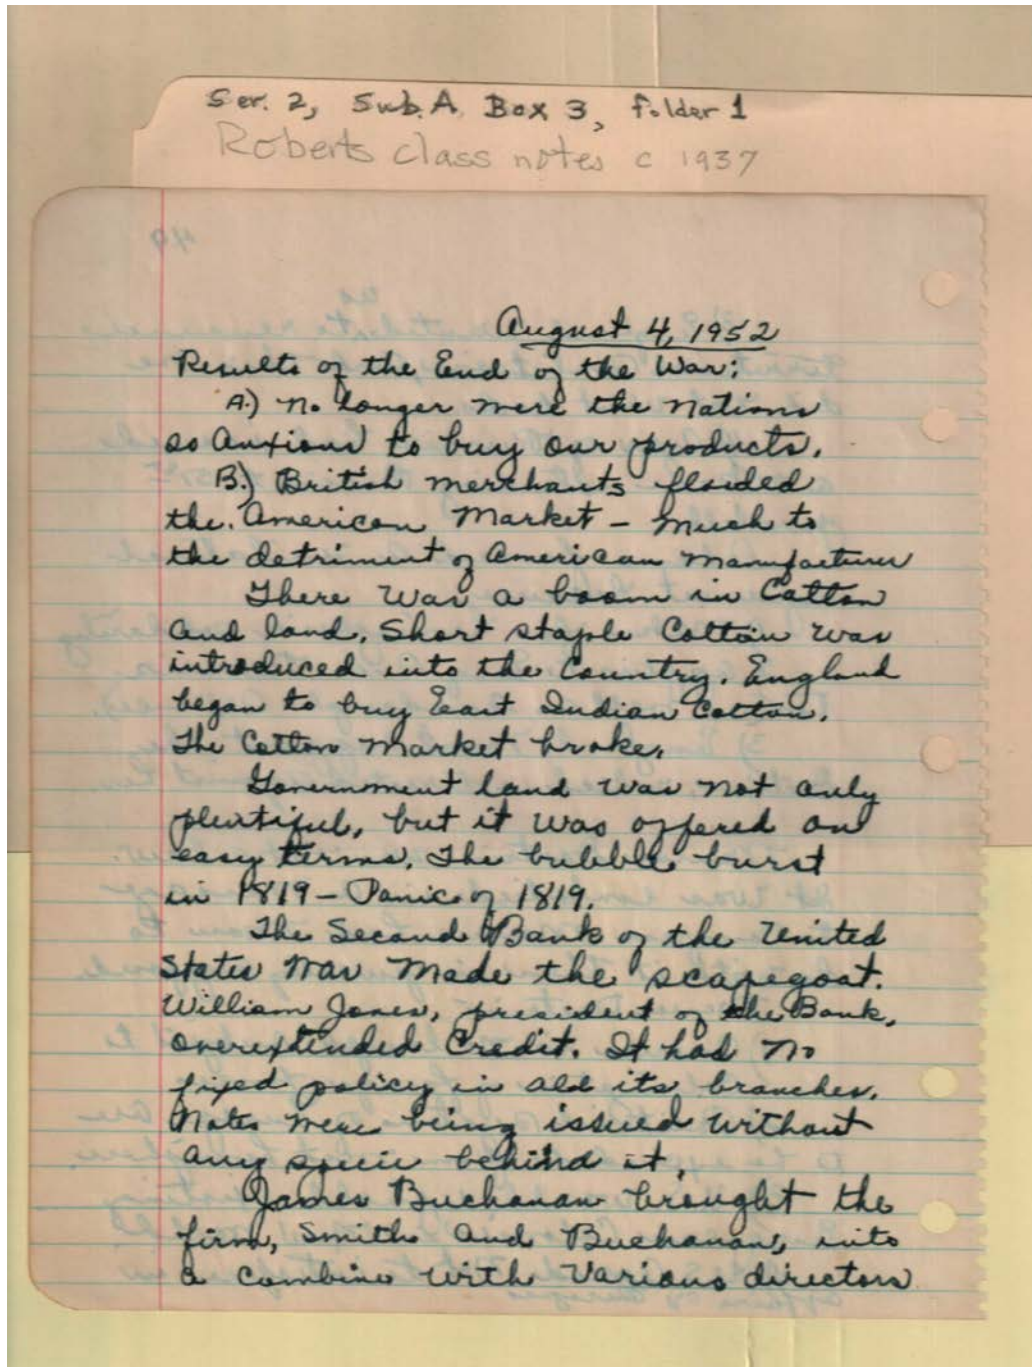 Ser. 2, Sub. A. Box 3, Folder 1
Roberts class notes c 1937
49
August 4, 1952
Results of the End of the War:
A.) No longer were the Nations
so Anxious to buy our products.
B.) British merchants flooded
the American Market – Much to
the detriment of American Manufacturer
There was a boom in Cotton
and land. Short staple Cotton was
introduced into the Country. England
began to buy East Indian Cotton.
The Cotton Market broke.
Government land was not only
plentiful, but it was offered on
easy terms. The bubble burst
in 1819 – Panic of 1819.
The Second Bank of the United
States was made the scapegoat.
William Jones, president of the Bank,
overextended Credit. It had no
fixed policy in all its branches.
Notes were being issued without
any specie behind it.
James Buchanan brought the
firm, Smith and Buchanan, into
a combine with various directors